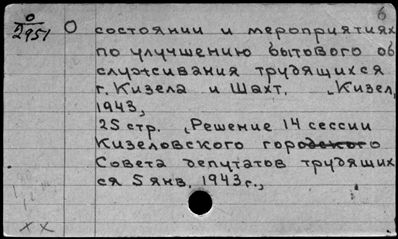 6
0
2951
О состоянии и мероприятиях
по улучшению бытового об
служивания трудящихся
г. Кизела и Шахт. „Кизел,
1943,
25 стр. „Решение 14 сессии
Кизеловского городского
Совета депутатов трудящих
ся 5 янв. 1943г.,
хх